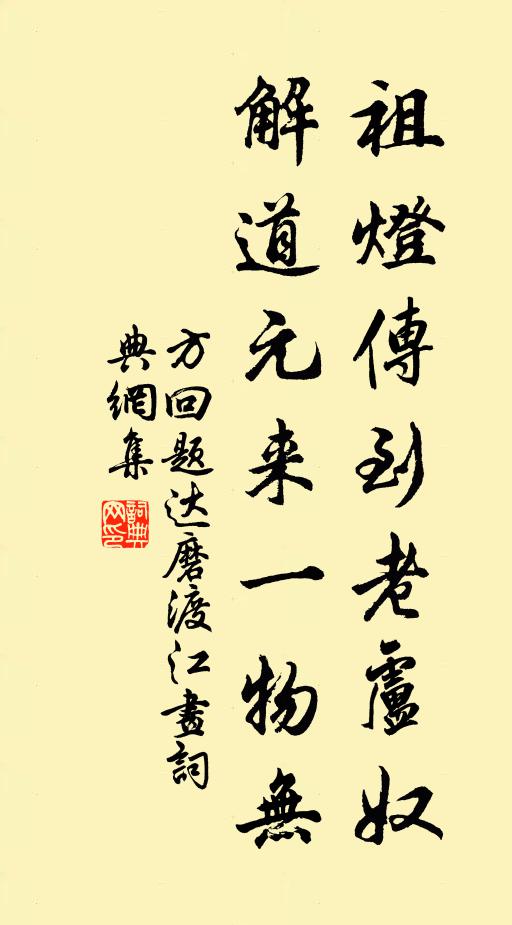 祖燈傳到老盧奴
解道元来一物無
方回题达磨渡江畫詞
典網集
詞典网印